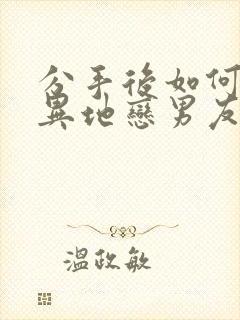 分手後如何
異地戀男友
溫政敏